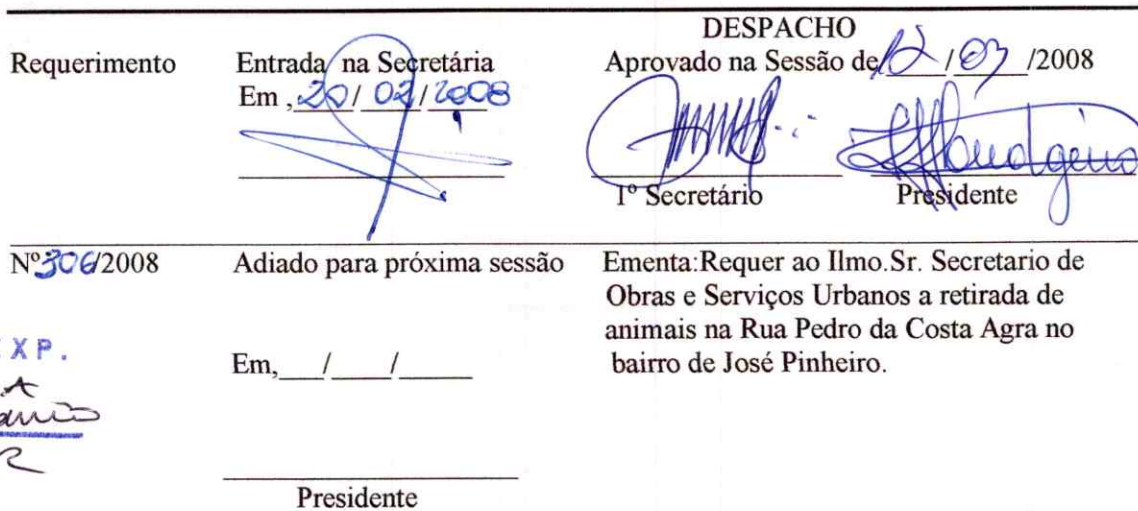 DESPACHO
Requerimento
Entrada na Secretária
Em ,20/ 02/2008
Aprovado na Sessão de 12/03/2008
1º Secretário
Presidente
Nº306/2008
Adiado para próxima sessão
Em,___/____/_____
Presidente
Ementa:Requer ao Ilmo.Sr. Secretario de
Obras e Serviços Urbanos a retirada de
animais na Rua Pedro da Costa Agra no
bairro de José Pinheiro.
XP.